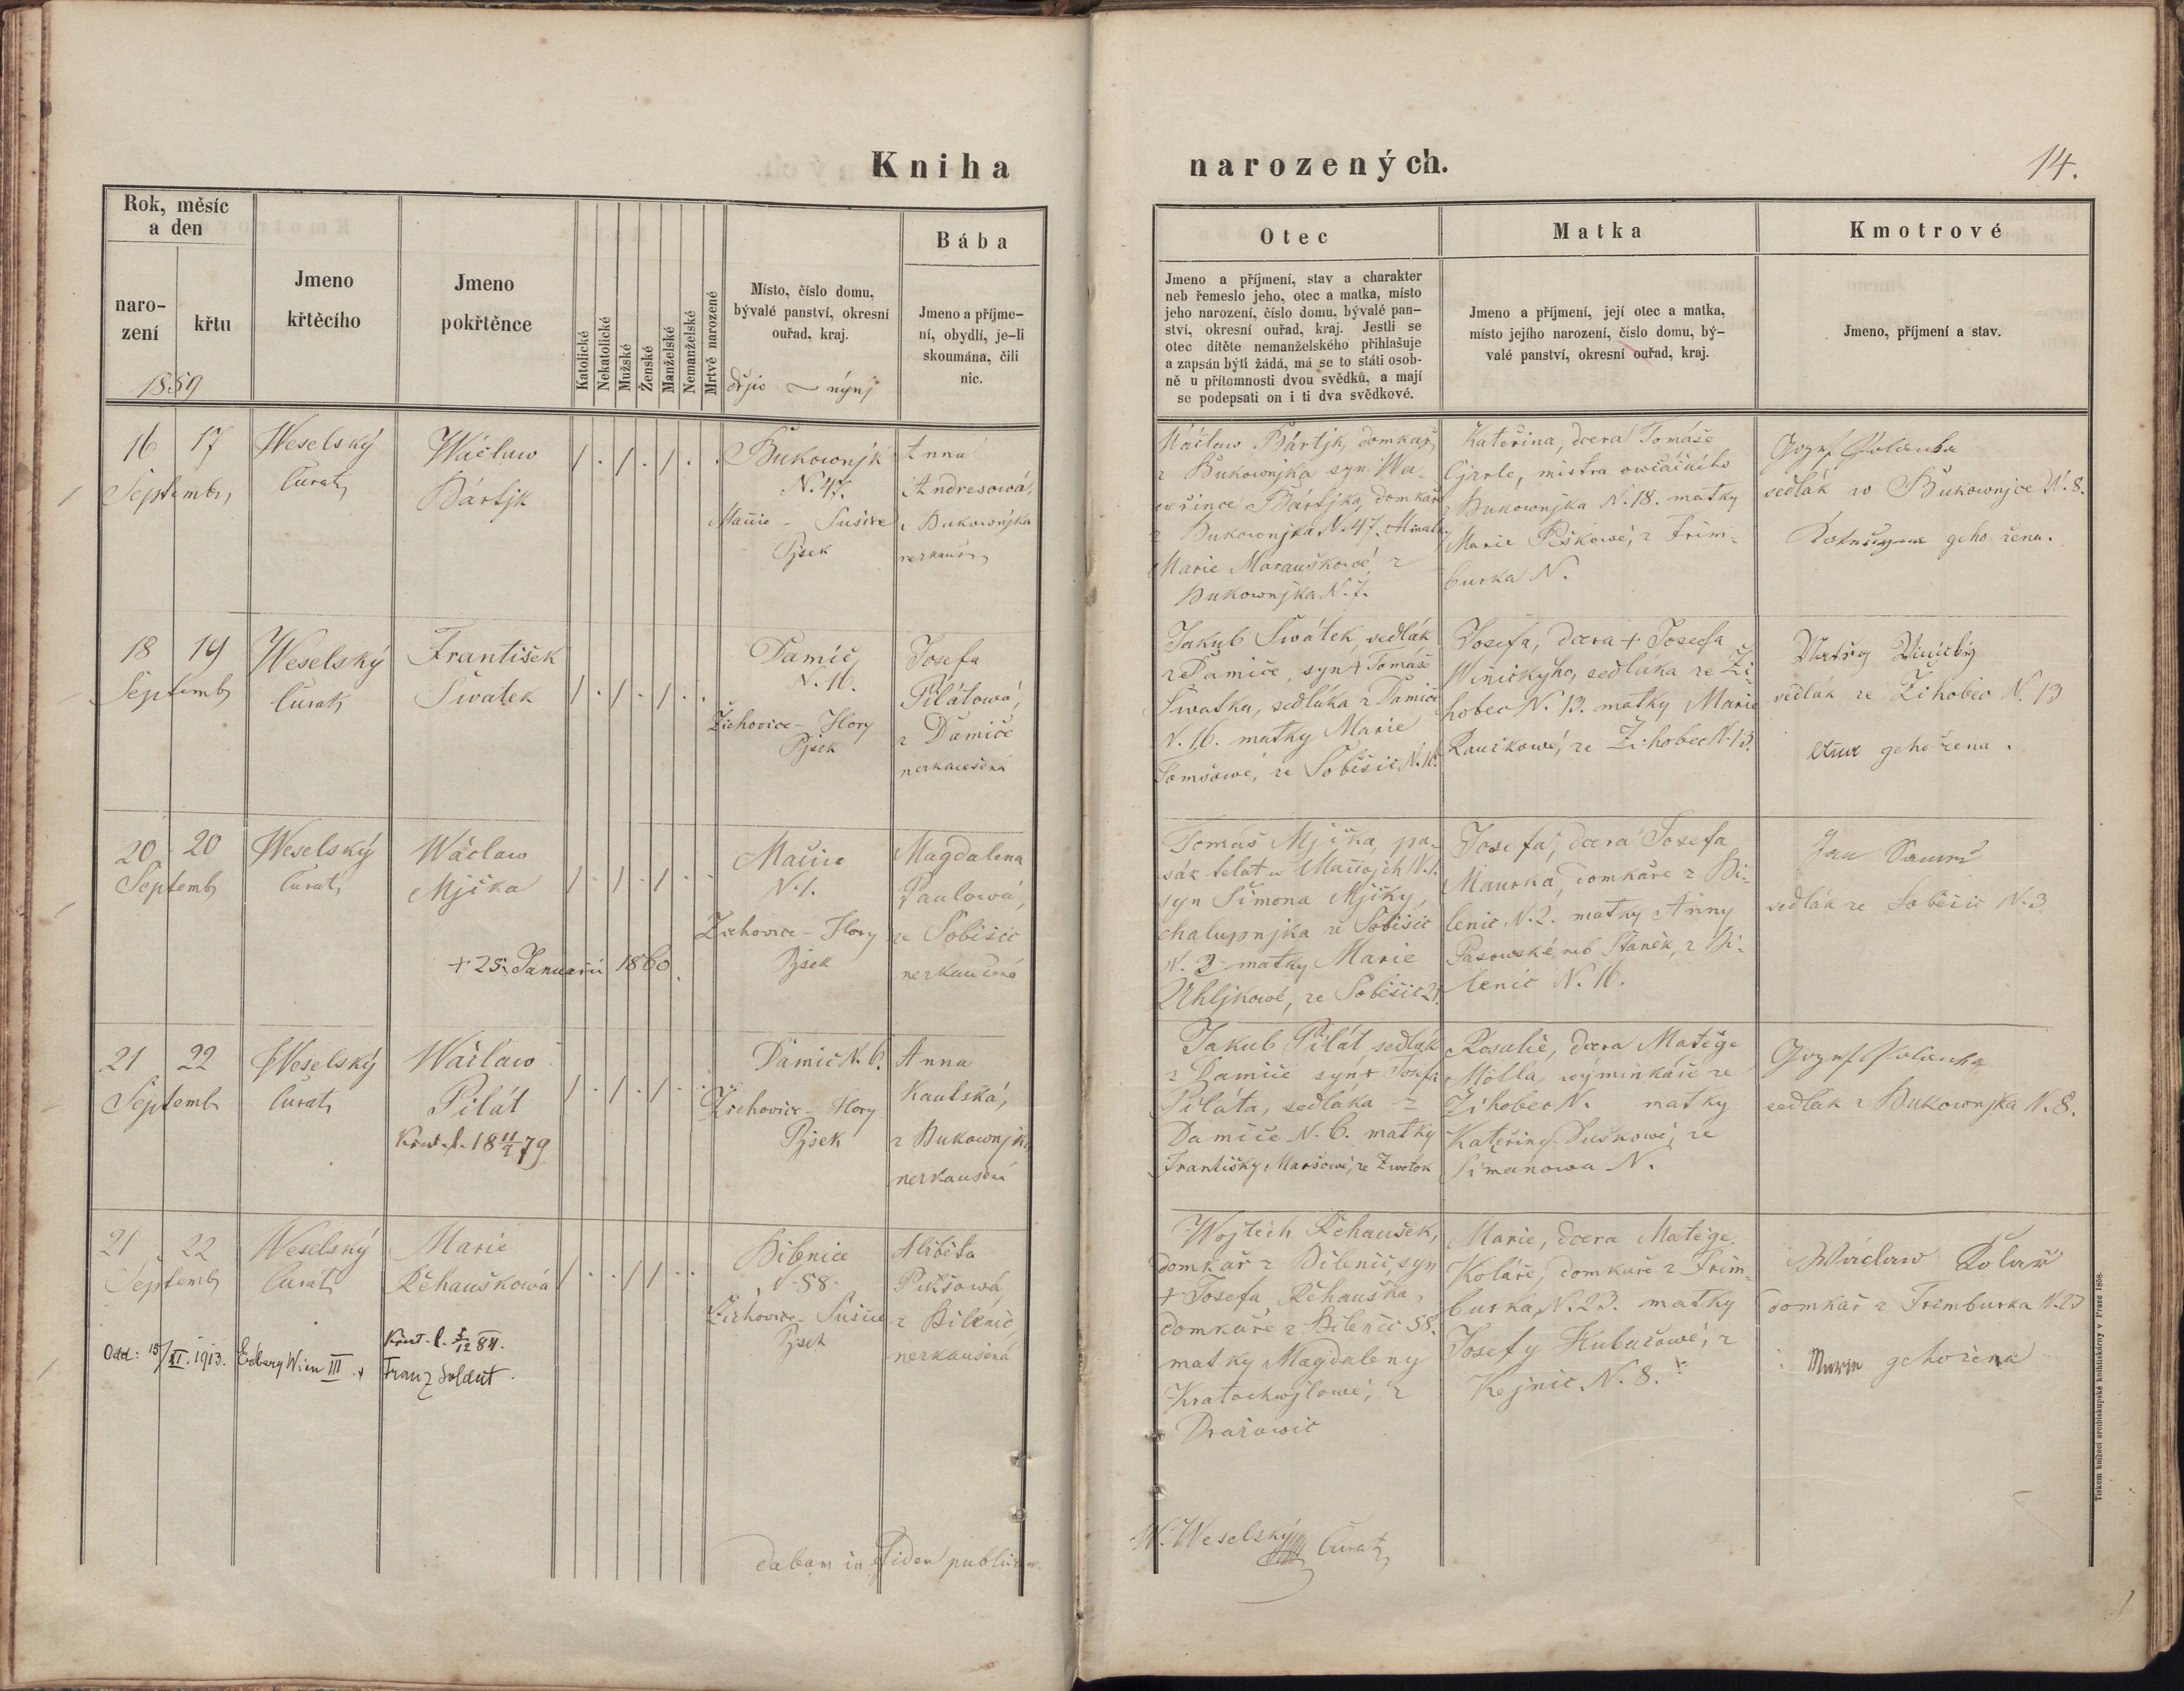 Kniha narozených.
14.
Rok, měsíc
a den
naro-
zení
křtu
1859
Jmeno
křtěcího
Jmeno
pokřtěnce
Katolické
Nekatolické
Mužské
Ženské
Manželské
Nemanželské
Mrtvě narozené
Místo, číslo domu,
bývalé panství, okresní
ouřad, kraj.
nynj
Bába
Jmeno a příjme-
ní, obydlí, je-li
skoumána, čili
nic.
Otec
Jmeno a příjmení, stav a charakter
neb řemeslo jeho, otec a matka, místo
jeho narození, číslo domu, bývalé pan-
ství, okresní ouřad, kraj. Jestli se
otec dítěte nemanželského přihlašuje
a zapsán býti žádá, má se to státi osob-
ně u přítomnosti dvou svědků, a mají
se podepsati on i ti dva svědkové.
Matka
Jmeno a příjmení, její otec a matka,
místo jejího narození, číslo domu, bý-
valé panství, okresní ouřad, kraj.
Kmotrové
Jmeno, příjmení a stav.
16 17
Septembr,
Weselský
Curat,
Wáclaw
Bártjk
Bukownjk
N. 47.
Sušice
Pjsek
Anna
Andresowá,
z Bukownjka
Wáclaw Bártjk, domkař,
z Bukownjka syn Wa-
wřince Bártjka, domkaře
z Bukownjka N. 47. Matky
Marie Marauškowé z
Bukownjka N. 7.
Kateřina, dcera Tomáše
mistra owčáckého
z Bukownjka N. 18. matky
Marie Peškowé, z Frim-
burka N.
sedlák w Bukownjce N. 8.
geho žena.
18 19
Septemb,
Weselský
Curat,
František
Swatek
Damíč
N. 16.
Žichovice - Hory
Pjsek
Josefa
Pilátowá,
z Damíče
nezkaušená
Jakub Swátek, sedlák
z Damíče, syn + Tomáše
Swatka, sedláka z Damíče
N. 16. matky Marie
Tomšowé, ze Soběšic N. 16.
Josefa, dcera + Josefa
Winickýho, sedlaka ze Ži-
hobec N. 13. matky Marie
Raučkowé, ze Žihobec N. 13.
sedlák ze Žihobec N. 13
geho žena.
20 20
Septemb,
Weselský
Curat,
Wáclaw
Mjčka
+ 25. Januarii 1860.
N. 1.
Žichovice - Hory
Pjsek
Magdalena
Paulowá,
ze Soběšic
nezkaušená
Tomáš Mjčka, pa-
N. 1.
syn Šimona Mjčky,
chalupnjka ze Soběšic
N. 3 matky Marie
Uhljkowé, ze Soběšic 21.
Josefa, dcera Josefa
Maurka, domkáře z Bi-
lenic N. 2. matky Anny
Pasowské, neb Staněk, z Bi-
lenic N. 16.
Jan
sedlák ze Soběšic N. 3
21 22
Septemb
Weselský
Curat,
Wáclaw
Pilát
Křest. l. 18 11/1 79
Damíč N. 6.
Žichovice - Hory
Pjsek
Anna
Kautská,
z Bukownjka,
nezkaušená
Jakub Pilát sedlák
z Damíče syn + Josefa
Piláta, sedláka z
Damíče N. 6. matky
Františky Maršowé, ze Zwotok
Rosalie, dcera Matěge
Motla, wýminkáře ze
Žihobec N. matky
Kateřiny Duškowé, ze
Simanowa N.
sedlak z Bukownjka N. 8.
21 22
Septemb,
Weselský
Curat,
Marie
Řehauškowá
Křest. l. 5/12 84.
Odd: 15/XI. 1913. Erdberg Wien III.
Franz Soldát.
Bilenice
N. 58.
Žichovice - Sušice
Pjsek
Alžběta
z Bilenic,
nezkaušená
Wojtěch Řehaušek,
domkař z Bilenic, syn
+ Josefa Řehauška,
domkáře z Bilenic 58.
matky Magdaleny
Kratochwjlowé, z
Dražowic
Marie, dcera Matěge
Koláře, domkaře z Frim-
burka N. 23. matky
Josefy Hubačowé, z
Kejnic N. 8.
Wáclaw Kolář
domkář z Frimburka N. 23
Marie geho žena
dabam in fidem publicam.
W. Weselský Curat,
Tiskem knížecí arcibiskupské knihtiskárny v Praze 1858.